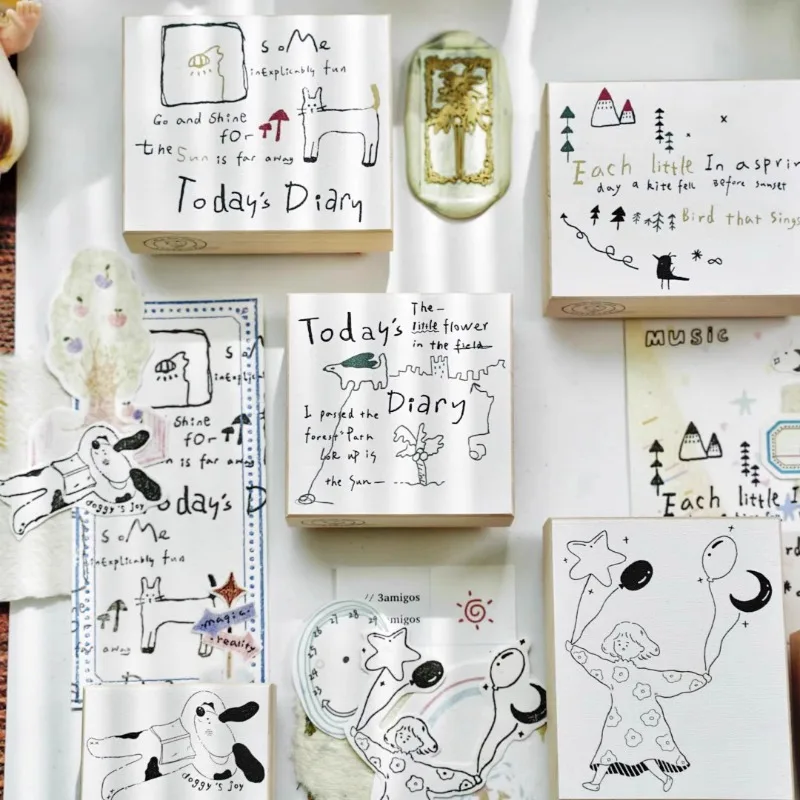 SoMe
inExplicably fun
Go and Shine
for
the Sun is far away
Today's Diary
Each little In a sprin
day a kite fell Before sunset
Bird that sings
Today's
The—
little flower
in the field
Diary
I passed the
forest Path
look up is
the Sun—
MUSIC
Each little I
S
inExplic
Shine
for
n is far aw
oday's D
doggy's joy
SoMe
inExplicably fun
away
magic
reality
// 3amigos
migos
26 27 28 29
25
23
doggy's joy